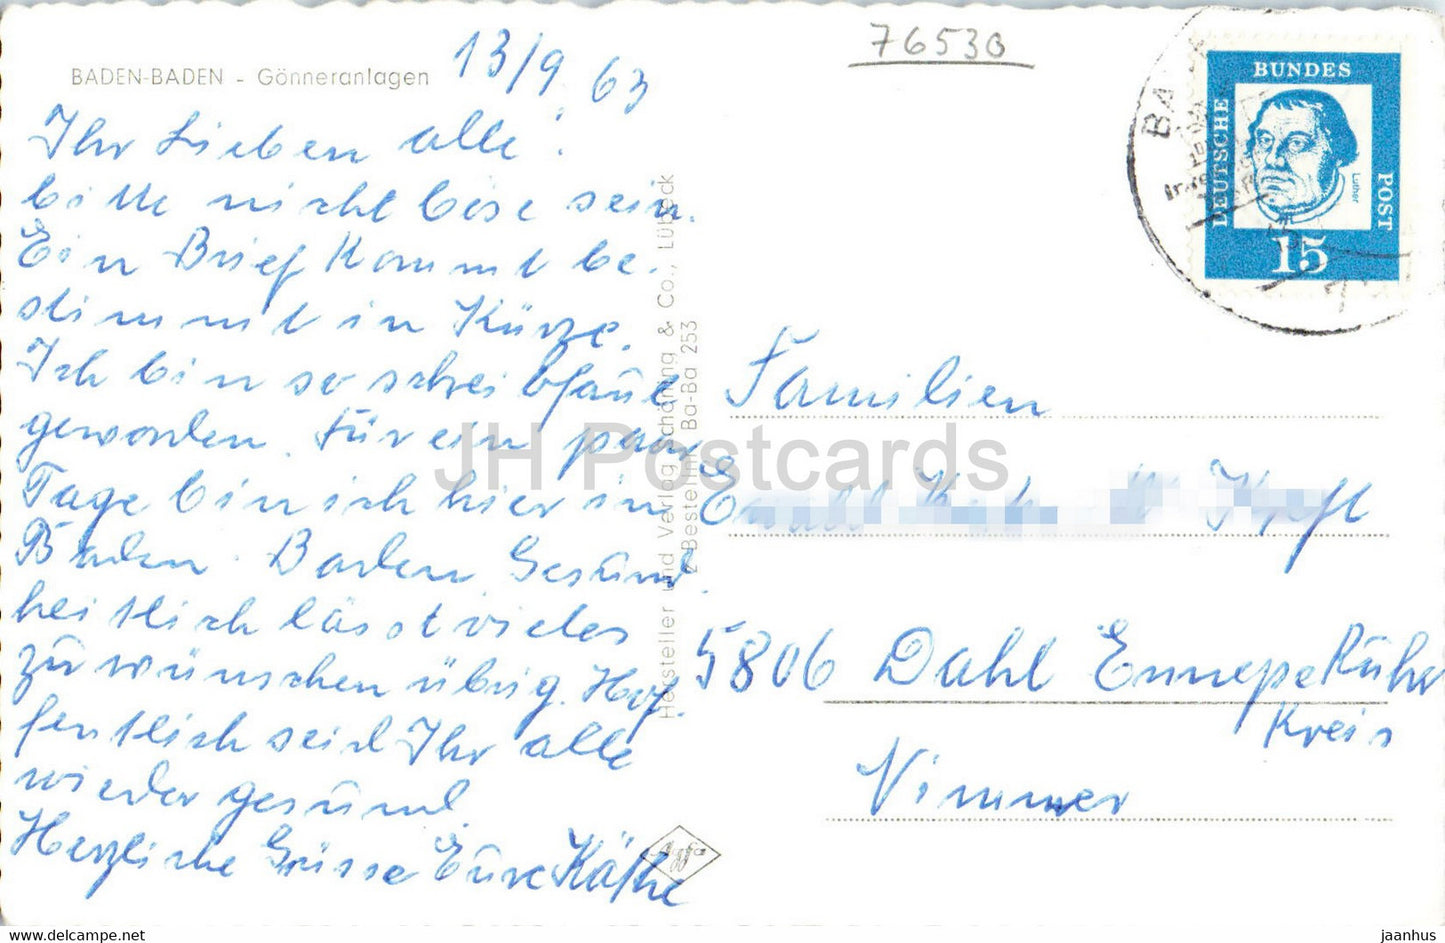 BADEN-BADEN - Gönneranlagen
13/9 63
76530
Ihr Lieben alle!
bitte nicht böse sein.
Ein Brief kommt be-
stimmt in Kürze.
Ich bin so schreibfaul
geworden. Für ein paar
Tage bin ich hier in
Baden-Baden. Gesund
heitlich lässt vieles
zu wünschen übrig. Hof-
fentlich seid Ihr alle
wieder gesund.
Herzliche Grüsse Eure Käthe
Hersteller und Verlag Schöning & Co., Lübeck
Bestellnr. Ba-Ba 253
Agfa
DEUTSCHE
BUNDES
POST
Luther
15
BA
Familien
Ewald
5806 Dahl Ennepe Ruhr
Kreis
Nimmer
JH Postcards
www.jhpostcard.com
jaanhus